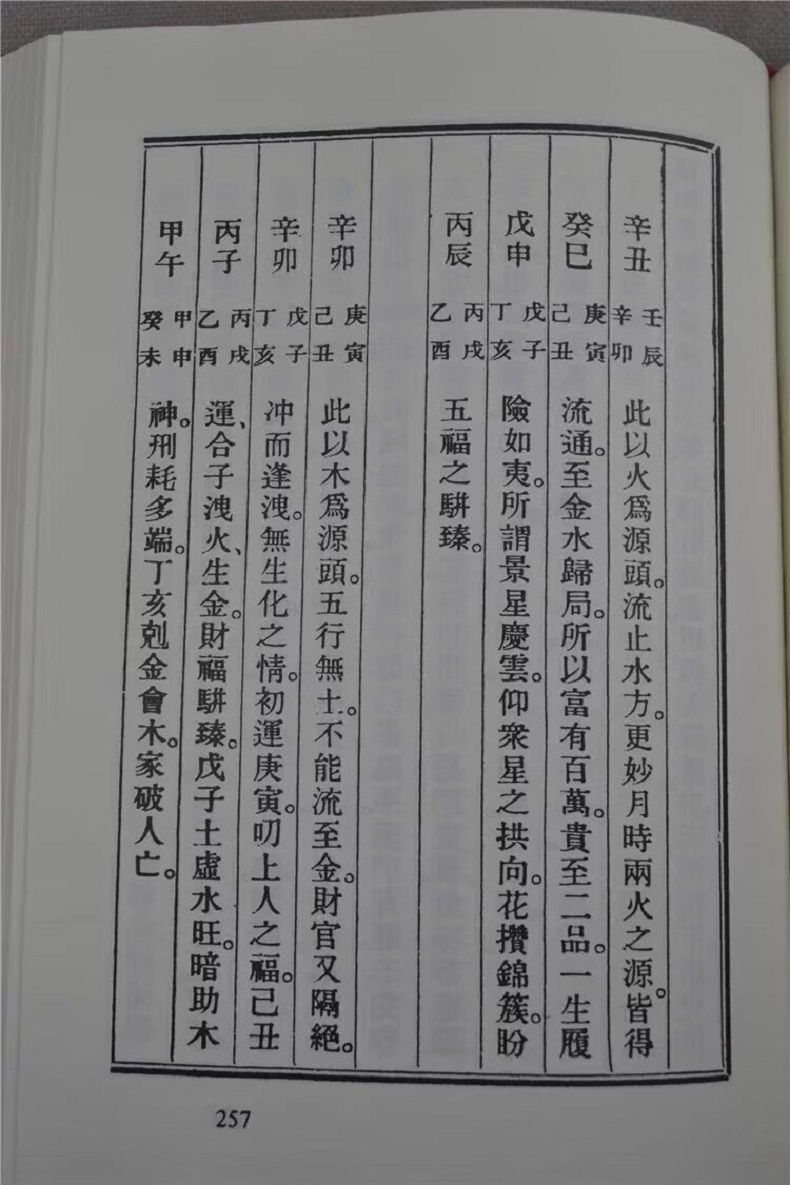 辛丑 壬辰 辛卯 此以火爲源頭。流止水方。更妙月時兩火之源。皆得
癸巳 庚寅 己丑 流通。至金水歸局。所以富有百萬。貴至二品。一生履
戊申 戊子 丁亥 險如夷。所謂景星慶雲。仰衆星之拱向。花攢錦簇。盼
丙辰 丙戌 乙酉 五福之駢臻。
辛卯 庚寅 己丑 此以木爲源頭。五行無土。不能流至金。財官又隔絕。
辛卯 戊子 丁亥 冲而逢洩。無生化之情。初運庚寅。叨上人之福。己丑
丙子 丙戌 乙酉 運、合子洩火、生金。財福駢臻。戊子土虛水旺。暗助木
甲午 甲申 癸未 神。刑耗多端。丁亥剋金會木。家破人亡。
257